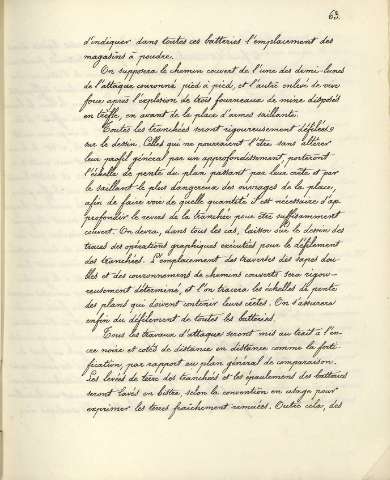 63.
d'indiquer dans toutes ces batteries l'emplacement des
magasins à poudre.
On supposera le chemin couvert de l'une des demi-lunes
de l'attaque couronné pied à pied, et l'autre enlevé de vive
force après l'explosion de trois fourneaux de mine disposés
en trèfle, en avant de la place d'armes saillante.
Toutes les tranchées seront rigoureusement défilées
sur le dessin. Celles qui ne pourraient l'être sans altérer
leur profil général par un approfondissement, porteront
l'échelle de pente du plan passant par leur crête et par
le saillant le plus dangereux des ouvrages de la place,
afin de faire voir de quelle quantité il est nécessaire d'ap-
profondir le revers de la tranchée pour être suffisamment
couvert. On devra, dans tous les cas, laisser sur le dessin des
traces des opérations graphiques exécutées pour le défilement
des tranchées. L'emplacement des traverses des sapes dou-
bles et des couronnements de chemins couverts sera rigou-
reusement déterminé, et l'on tracera les échelles de pente
des plans qui doivent contenir leurs crêtes. On s'assurera
enfin du défilement de toutes les batteries.
Tous les travaux d'attaque seront mis au trait à l'en-
cre noire et cotés de distance en distance comme la forti-
fication, par rapport au plan général de comparaison.
Les levées de terre des tranchées et les épaulements des batteries
seront lavés en bistre, selon la convention en usage pour
exprimer les terres fraîchement remuées. Outre cela, des